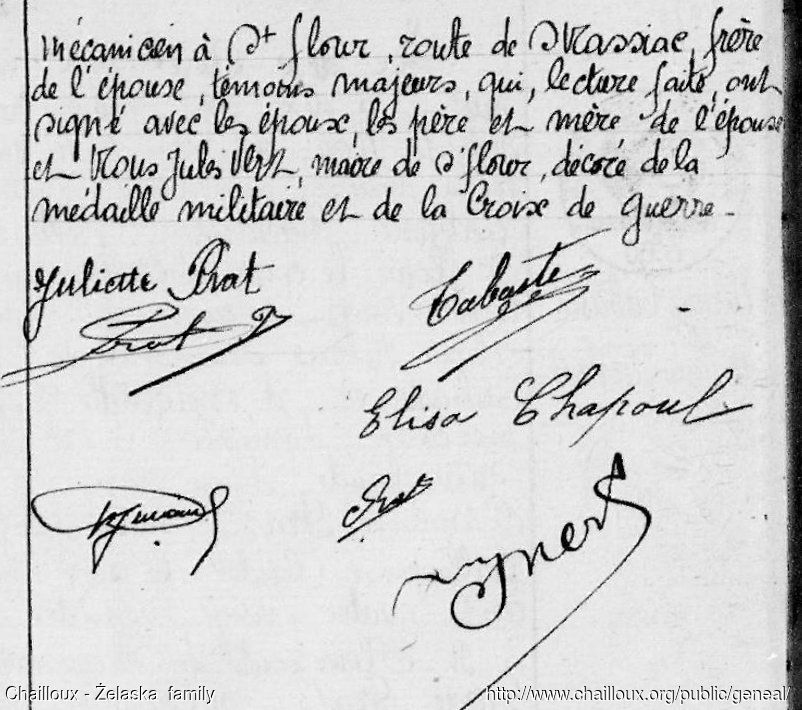 mécanicien à St flour, route de Massiac, frère
de l'épouse, témoins majeurs, qui, lecture faite, ont
signé avec les époux, les père et mère de l'épouse
et Nous Jules Vert, maire de St flour, décoré de la
médaille militaire et de la Croix de guerre -
Juliette Prat
Prat
Elisa Chapoul
Chailloux - Želaska family
http://www.chailloux.org/public/geneal/